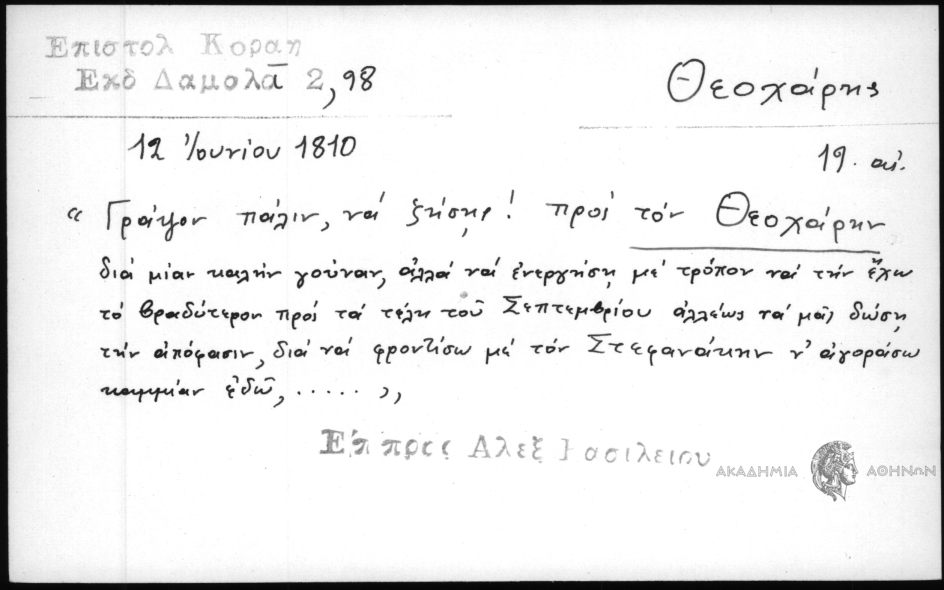 Επιστολ Κοραη
Εκδ Δαμαλᾶ 2, 98
Θεοχάρης
12 Ἰουνίου 1810
19. αἰ.
“ Γράψον πάλιν, νά ζήσῃς! πρός τόν Θεοχάρην
διά μίαν καλήν γούναν, ἀλλά νά ἐνεργήσῃ μέ τρόπον νά τήν ἔχω
τό βραδύτερον πρός τά τέλη τοῦ Σεπτεμβρίου ἀλλέως νά μᾶς δώσῃ
τήν ἀπόφασιν, διά νά φροντίσω μέ τόν Στεφανάκην ν' ἀγοράσω
καμμίαν ἐδῶ, ..... ,,
Επ προς Αλεξ Βασιλειου
ΑΚΑΔΗΜΙΑ ΑΘΗΝΩΝ